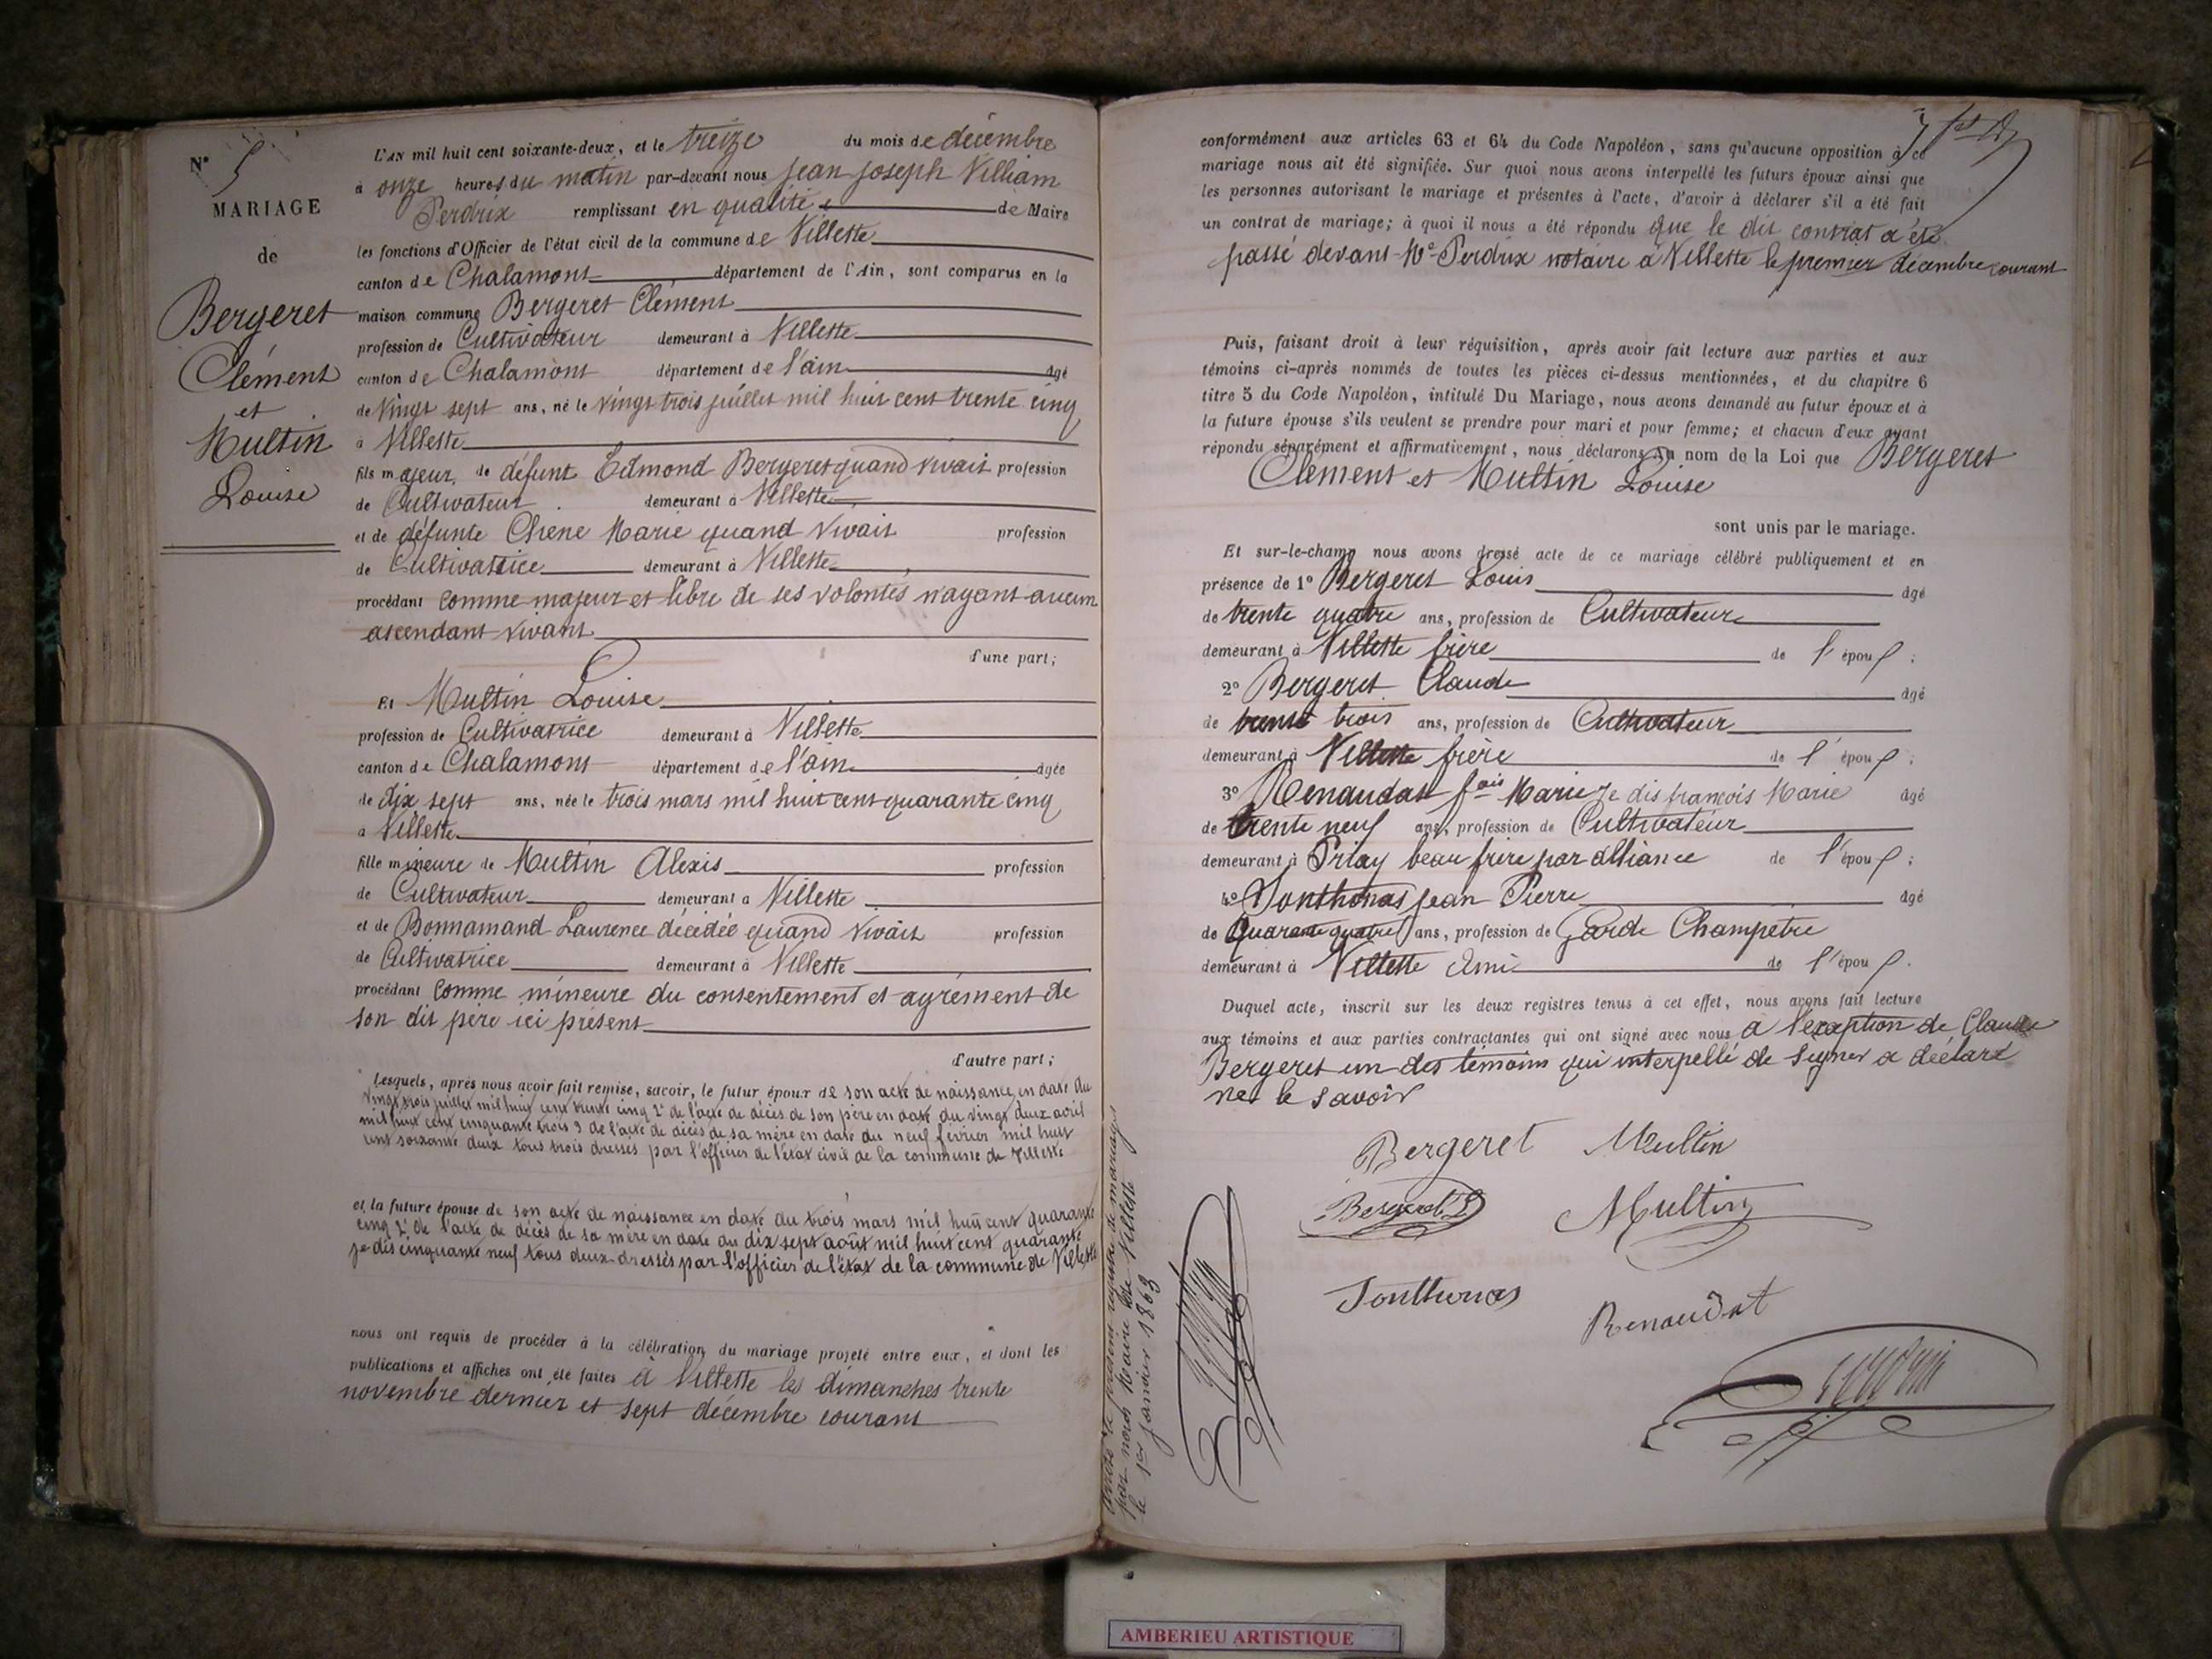 N° 5
MARIAGE
de
Bergeret
Clément
et
Multin
Louise
L'AN mil huit cent soixante-deux, et le treize du mois de décembre
à onze heures du matin par-devant nous Jean Joseph Villiam
Perdrix remplissant en qualité de Maire
les fonctions d'Officier de l'état civil de la commune de Villette
canton de Chalamont département de l'Ain, sont comparus en la
maison commune Bergeret Clément
profession de Cultivateur demeurant à Villette
canton de Chalamont département de l'ain âgé
de vingt sept ans, né le vingt trois juillet mil huit cent trente cinq
à Villette
fils majeur de défunt Edmond Bergeret quand vivait profession
de Cultivateur demeurant à Villette
et de défunte Chene Marie quand vivait profession
de Cultivatrice demeurant à Villette
procédant comme majeur et libre de ses volontés n'ayant aucun
ascendant vivant
d'une part;
Et Multin Louise
profession de Cultivatrice demeurant à Villette
canton de Chalamont département de l'ain âgée
de dix sept ans, née le trois mars mil huit cent quarante cinq
à Villette
fille mineure de Multin Alexis profession
de Cultivateur demeurant à Villette
et de Bonnamand Laurence décédée quand vivait profession
de Cultivatrice demeurant à Villette
procédant comme mineure du consentement et agrément de
son dit père ici présent
d'autre part;
Lesquels, après nous avoir fait remise, savoir, le futur époux de son acte de naissance en date du
vingt trois juillet mil huit cent trente cinq 2° de l'acte de décès de son père en date du vingt deux avril
mil huit cent cinquante trois 3 de l'acte de décès de sa mère en date du neuf février mil huit
cent soixante deux tous trois dressés par l'officier de l'état civil de la commune de Villette
et la future épouse de son acte de naissance en date du trois mars mil huit cent quarante
cinq 2° de l'acte de décès de sa mère en date du dix sept août mil huit cent quarante
je dis cinquante neuf tous deux dressés par l'officier de l'état de la commune de Villette
nous ont requis de procéder à la célébration du mariage projeté entre eux, et dont les
publications et affiches ont été faites à Villette les dimanches trente
novembre dernier et sept décembre courant
conformément aux articles 63 et 64 du Code Napoléon, sans qu'aucune opposition à ce
mariage nous ait été signifiée. Sur quoi nous avons interpellé les futurs époux ainsi que
les personnes autorisant le mariage et présentes à l'acte, d'avoir à déclarer s'il a été fait
un contrat de mariage; à quoi il nous a été répondu que le dit contrat a été
passé devant Me Perdrix notaire à Villette le premier décembre courant
Puis, faisant droit à leur réquisition, après avoir fait lecture aux parties et aux
témoins ci-après nommés de toutes les pièces ci-dessus mentionnées, et du chapitre 6
titre 5 du Code Napoléon, intitulé Du Mariage, nous avons demandé au futur époux et à
la future épouse s'ils veulent se prendre pour mari et pour femme; et chacun d'eux ayant
répondu séparément et affirmativement, nous déclarons au nom de la Loi que Bergeret
Clément et Multin Louise
sont unis par le mariage.
Et sur-le-champ nous avons dressé acte de ce mariage célébré publiquement et en
présence de 1° Bergeret Louis âgé
de trente quatre ans, profession de Cultivateur
demeurant à Villette frère de l'épou ;
2° Bergeret Claude âgé
de trente trois ans, profession de Cultivateur
demeurant à Villette frère de l'épou ;
3° Renaudat fais Marie je dis françois Marie âgé
de trente neuf ans, profession de Cultivateur
demeurant à Priay beau frère par alliance de l'épou ;
4° Jonthonas Jean Pierre âgé
de quarante quatre ans, profession de Garde Champêtre
demeurant à Villette Ami de l'épou .
Duquel acte, inscrit sur les deux registres tenus à cet effet, nous avons fait lecture
aux témoins et aux parties contractantes qui ont signé avec nous à l'exception de Claude
Bergeret un des témoins qui interpellé de signer a déclaré
ne le savoir
Bergeret Multin
Bergeret L Multin
Renaudat
par nous Maire de Villette
le 1er janvier 1863
AMBERIEU ARTISTIQUE